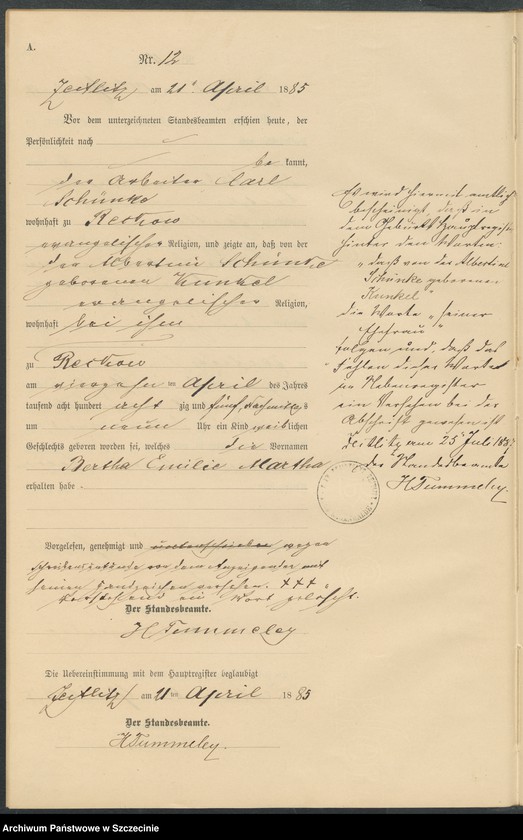 A.
Nr. 12
Zeitlitz am 21 April 1885
Vor dem unterzeichneten Standesbeamten erschien heute, der
Persönlichkeit nach
be kannt,
der Arbeiter Carl
Schünke
wohnhaft zu Reckow
evangelischer Religion, und zeigte an, daß von der
der Albertine Schünke
geborenen Kunkel
evangelischer Religion,
wohnhaft bei ihm
zu Reckow
am vierzehn = April des Jahres
tausend acht hundert acht zig und fünf, Nachmittags
um neun Uhr ein Kind weiblichen
Geschlechts geboren worden sei, welches die Vornamen
Bertha Emilie Martha
erhalten habe
Vorgelesen, genehmigt und unterschrieben wegen
von dem Anzeigenden mit
seinen Handzeichen versehen. +++
Vorstehend ein Wort gelöscht.
Der Standesbeamte.
H Tummeley
Die Uebereinstimmung mit dem Hauptregister beglaubigt
Zeitlitz am 21ten April 1885
Der Standesbeamte.
H Tummeley.
Es wird hiermit amtlich
bescheinigt, daß in
dem Geburts Hauptregister
hinter den Worten:
"daß von der Albertine
Schünke geborenen
Kunkel"
die Worte "seiner
Ehefrau"
folgen und, daß das
Fehlen dieser Worte
im Nebenregister
ein Versehen bei der
Abschrift gewesen ist
Zeitlitz am 25 Juli
der Standesbeamte
H Tummeley.
Archiwum Państwowe w Szczecinie